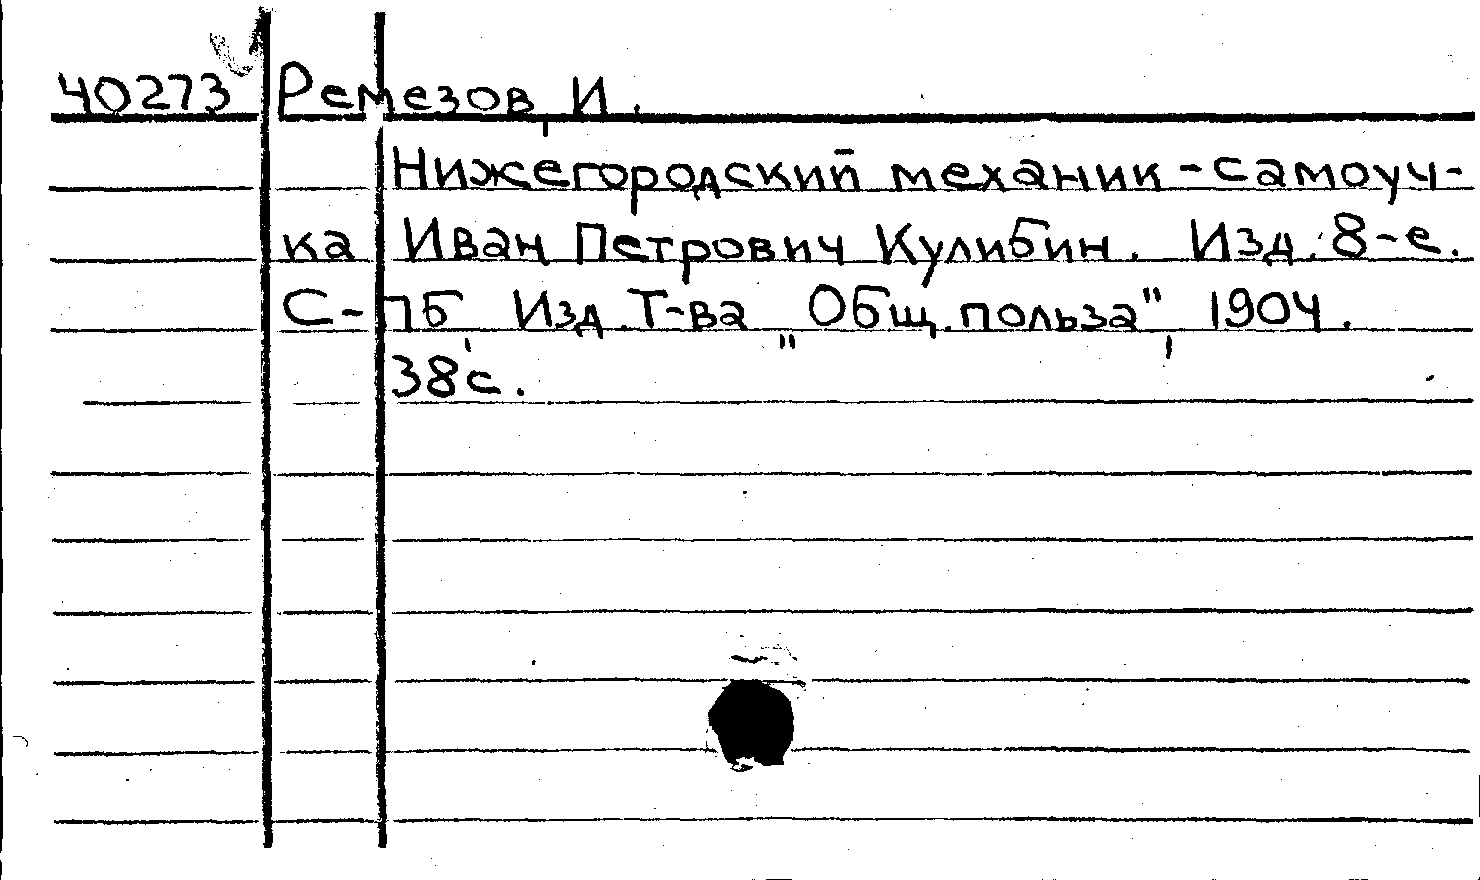 40273 Ремезов, И.
Нижегородский механик-самоуч-
ка Иван Петрович Кулибин. Изд. 8-е.
С-ПБ, Изд. Т-ва „Общ. польза", 1904.
38 с.